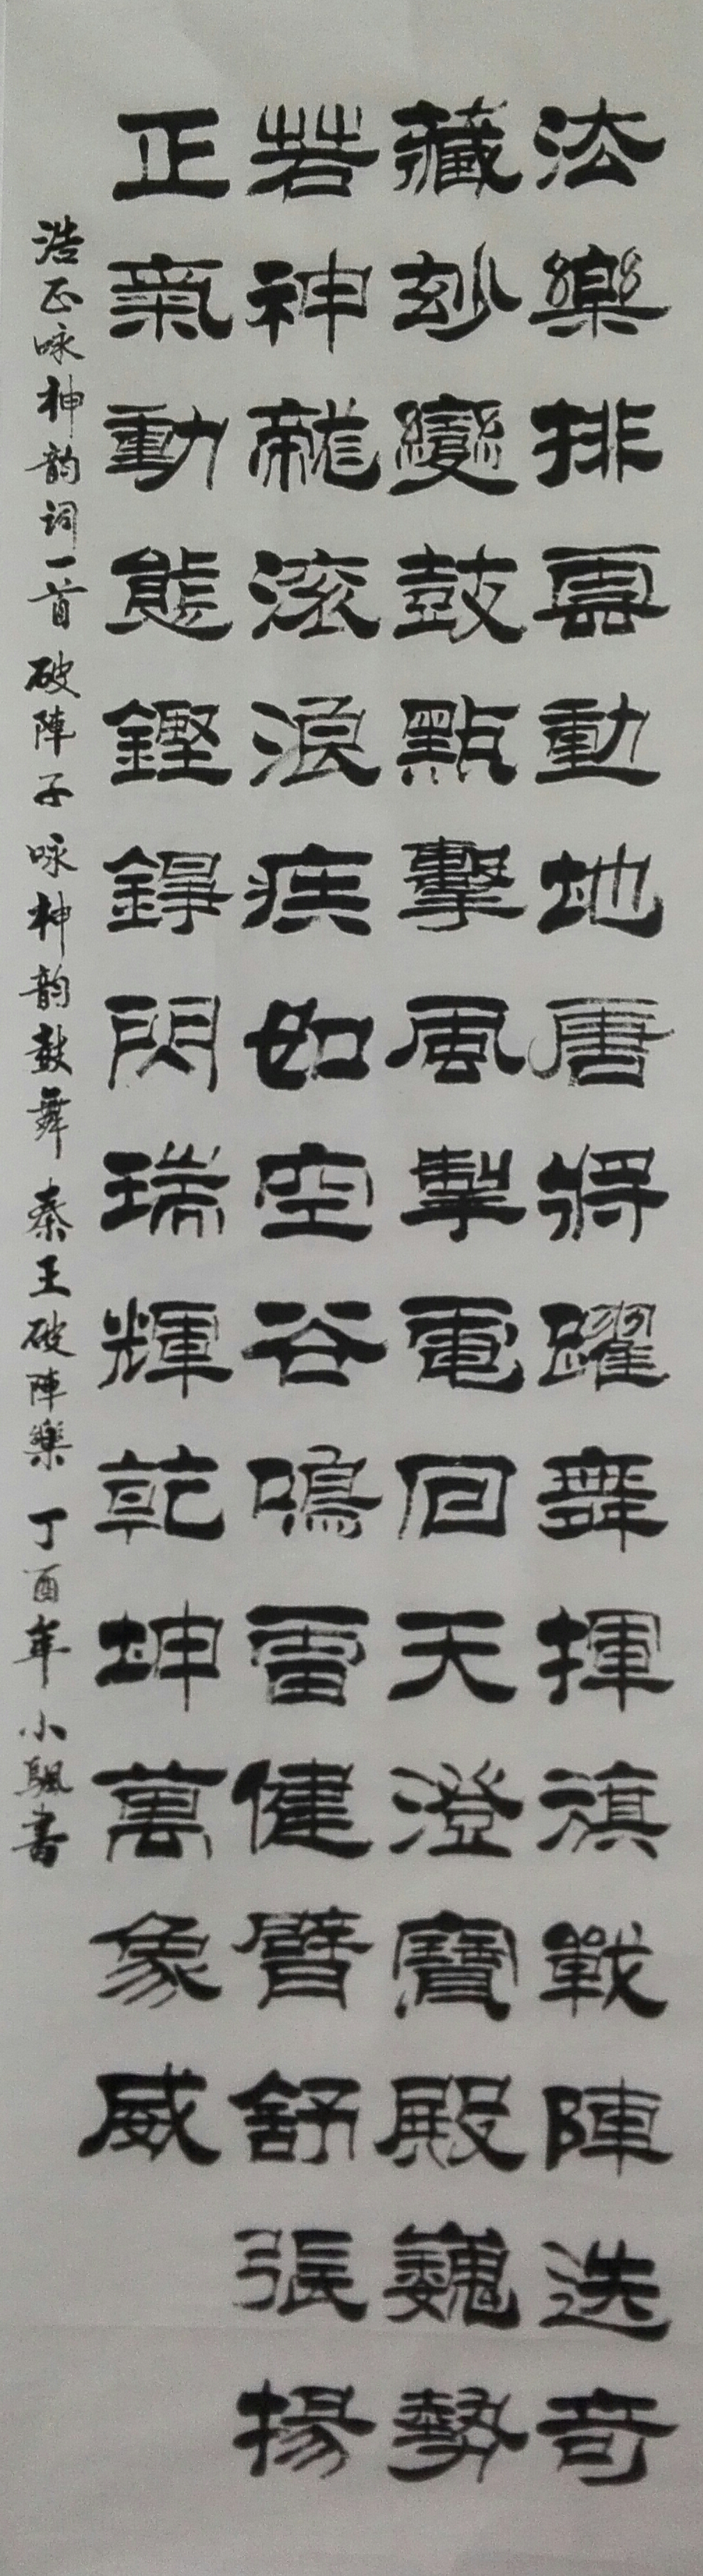 法樂排雲動地唐將躍舞揮旗戰陣迭奇
藏玅變鼓點擊風掣電回天澄寶殿巍勢
若神龍滚浪疾如空谷鳴雷健臂舒張揚
正氣動態鏗錚閃瑞輝乾坤萬象威
浩正咏神韵词一首 破陣子 咏神韵鼓舞 秦王破陣樂 丁酉年 小颿書